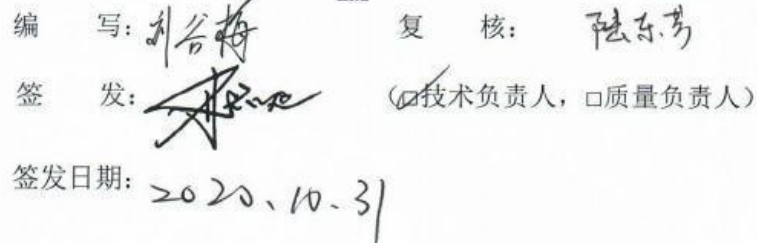 编 写：刘谷梅 复 核：陆东芳
签 发： （☑技术负责人，□质量负责人）
签发日期：2020、10、31